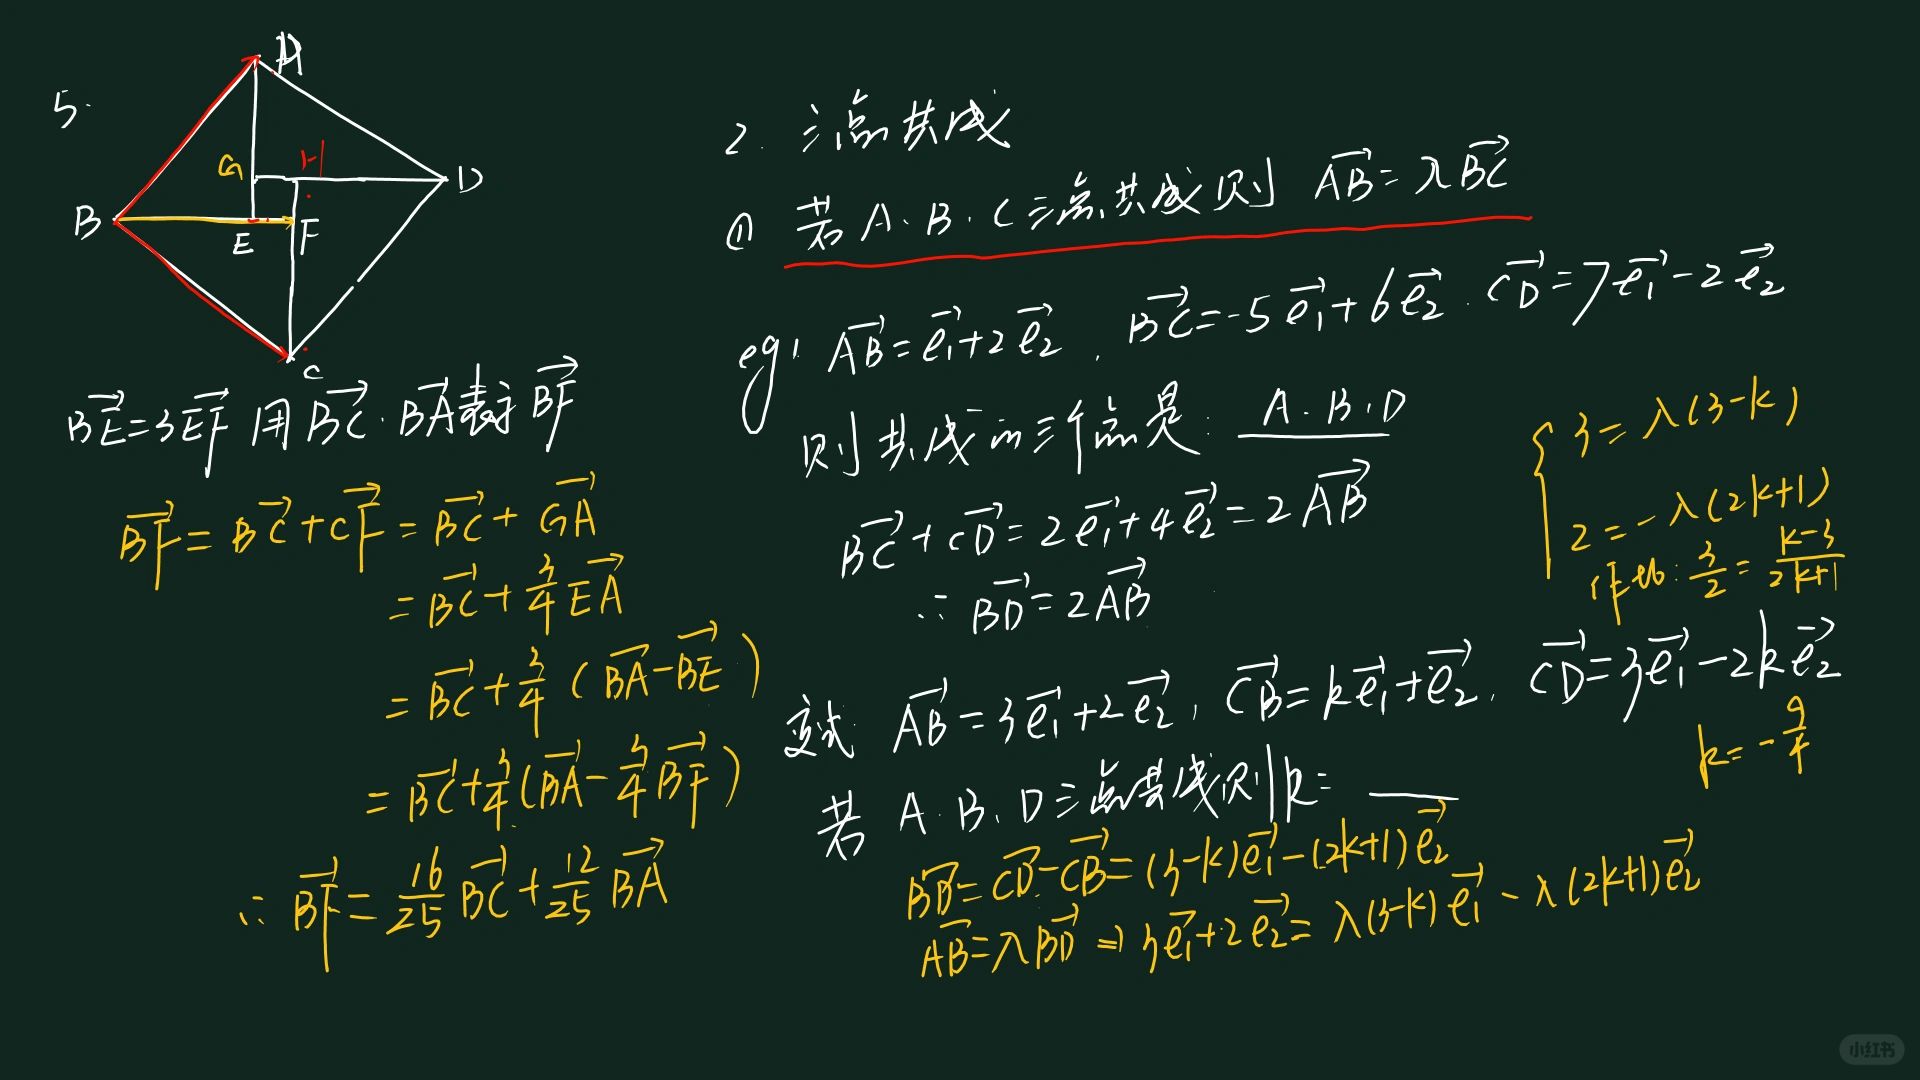 5.
A
G
H
D
B
E
F
C
BE→=3EF→ 用BC→·BA→表示BF→
BF→=BC→+CF→=BC→+GA→
=BC→+3/4EA→
=BC→+3/4(BA→-BE→)
=BC→+3/4(BA→-3/4BF→)
∴BF→=16/25BC→+12/25BA→
2. 三点共线
① 若A·B·C三点共线则 AB→=λBC→
eg: AB→=e₁→+2e₂→, BC→=-5e₁→+6e₂→. CD→=7e₁→-2e₂→
则共线的三个点是: A·B·D
BC→+CD→=2e₁→+4e₂→=2AB→
∴BD→=2AB→
变式 AB→=3e₁→+2e₂→, CB→=ke₁→+e₂→, CD→=3e₁→-2ke₂→
若 A·B·D三点共线则k=
BD→=CD→-CB→=(3-k)e₁→-(2k+1)e₂→
AB→=λBD→⇒3e₁→+2e₂→=λ(3-k)e₁→-λ(2k+1)e₂→
{3=λ(3-k)
2=-λ(2k+1)
作比: 3/2=k-3/2k+1
k=-9/4
小红书